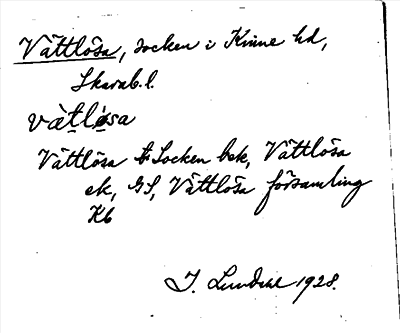 Vättlösa, socken i Kinne hd,
Skarab. l.
vätlösa
Vättlösa Socken bek, Vättlösa
ek, GS, Vättlösa församling
Kb
I. Lundahl 1928.